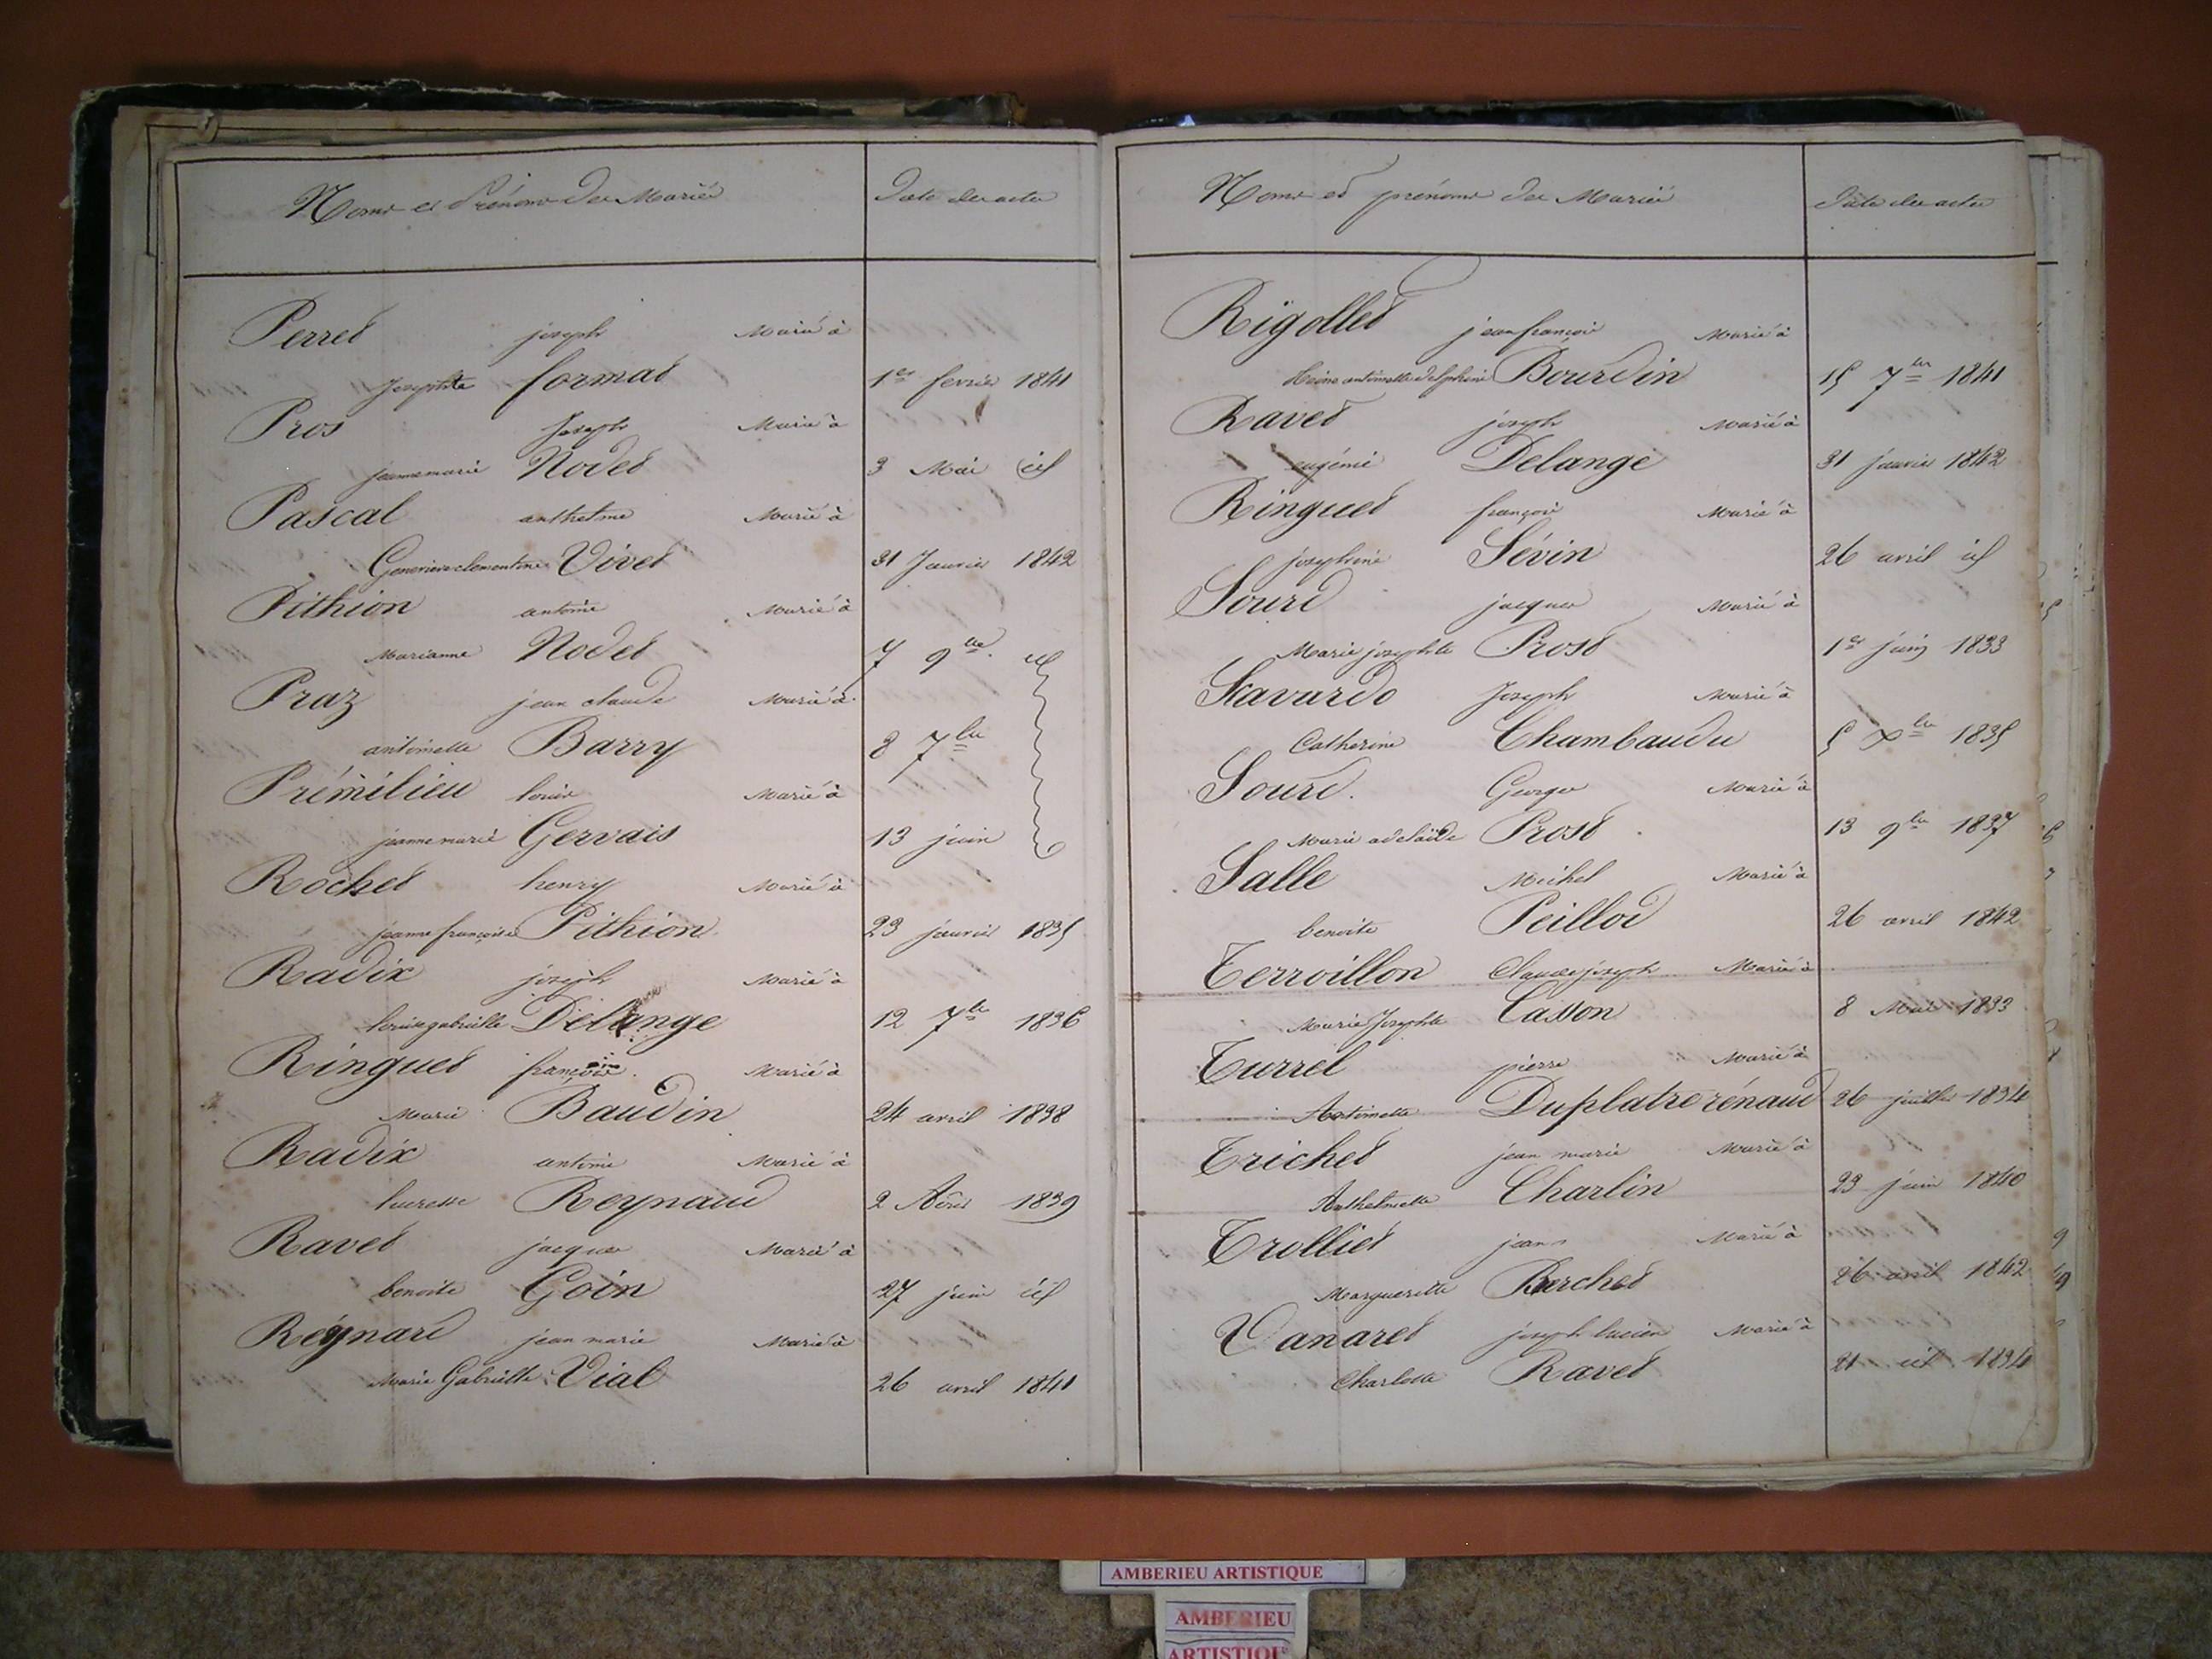 Noms et Prénoms des Mariés Date des actes
Perret joseph Marié à
Josephte format 1er fevrier 1841
Pros Joseph Marié à
jeanne marie Nodet 3 Mai id
Pascal anthelme Marié à
Genevieve clementine Vivet 31 Janvier 1842
Pithion antoine Marié à
Marianne Nodet 7 9bre id
Praz jean claude Marié à
antoinette Barry 8 7bre
Prémilieu louis Marié à
jeanne marie Gervais 13 juin
Rochet henry Marié à
jeanne françoise Pithion 23 janvier 1835
Radix joseph Marié à
louise gabrielle Delange 12 7bre 1836
Ringuet françois Marié à
Marie Baudin 24 avril 1838
Radix antoine Marié à
lucresse Reynaud 2 Avril 1839
Ravet jacques Marié à
benoite Goin 27 juin id
Réynard jean marie Marié à
Marie Gabrielle Vial 26 avril 1841
Noms et prénoms des Mariés Date des actes
Rigollet jean françois Marié à
antoinette delphine Bourdin 15 7bre 1841
Ravet joseph Marié à
eugénie Delange 31 janvier 1842
Ringuet françois Marié à
josephine Sévin 26 avril id
Sourd jacques Marié à
Marie josephte Prost 1er juin 1833
Savardo Joseph Marié à
Catherine Chambaudu 5 Xbre 1835
Sourd. George Marié à
Marie adelaïde Prost 13 9bre 1837
Salle Michel Marié à
benoite Peillod 26 avril 1842
Terroillon Claude joseph Marié à
Marie Josephte Casson 8 Mai 1833
Turrel pierre Marié à
Antoinette Duplatre rénaud 26 juillet 1834
Trichet jean marie Marié à
Anthelmette Charlin 23 juin 1840
Trolliet jean Marié à
Marguerite Berchet 26 avril 1842
Vanaret joseph lucien Marié à
Charlotte Ravet 21 1834
AMBERIEU ARTISTIQUE
AMBERIEU